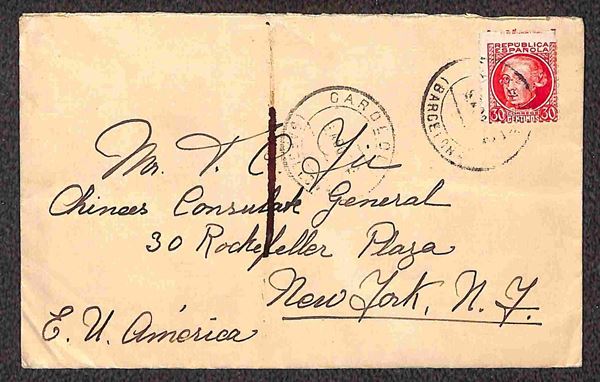 REPUBLICA
ESPAÑOLA
30 CORREOS 30
CENTIMOS
(BARCELONA)
Mr. T. C. Yii
Chinees Consulate General
30 Rockefeller Plaza
New York, N. Y.
E. U. América